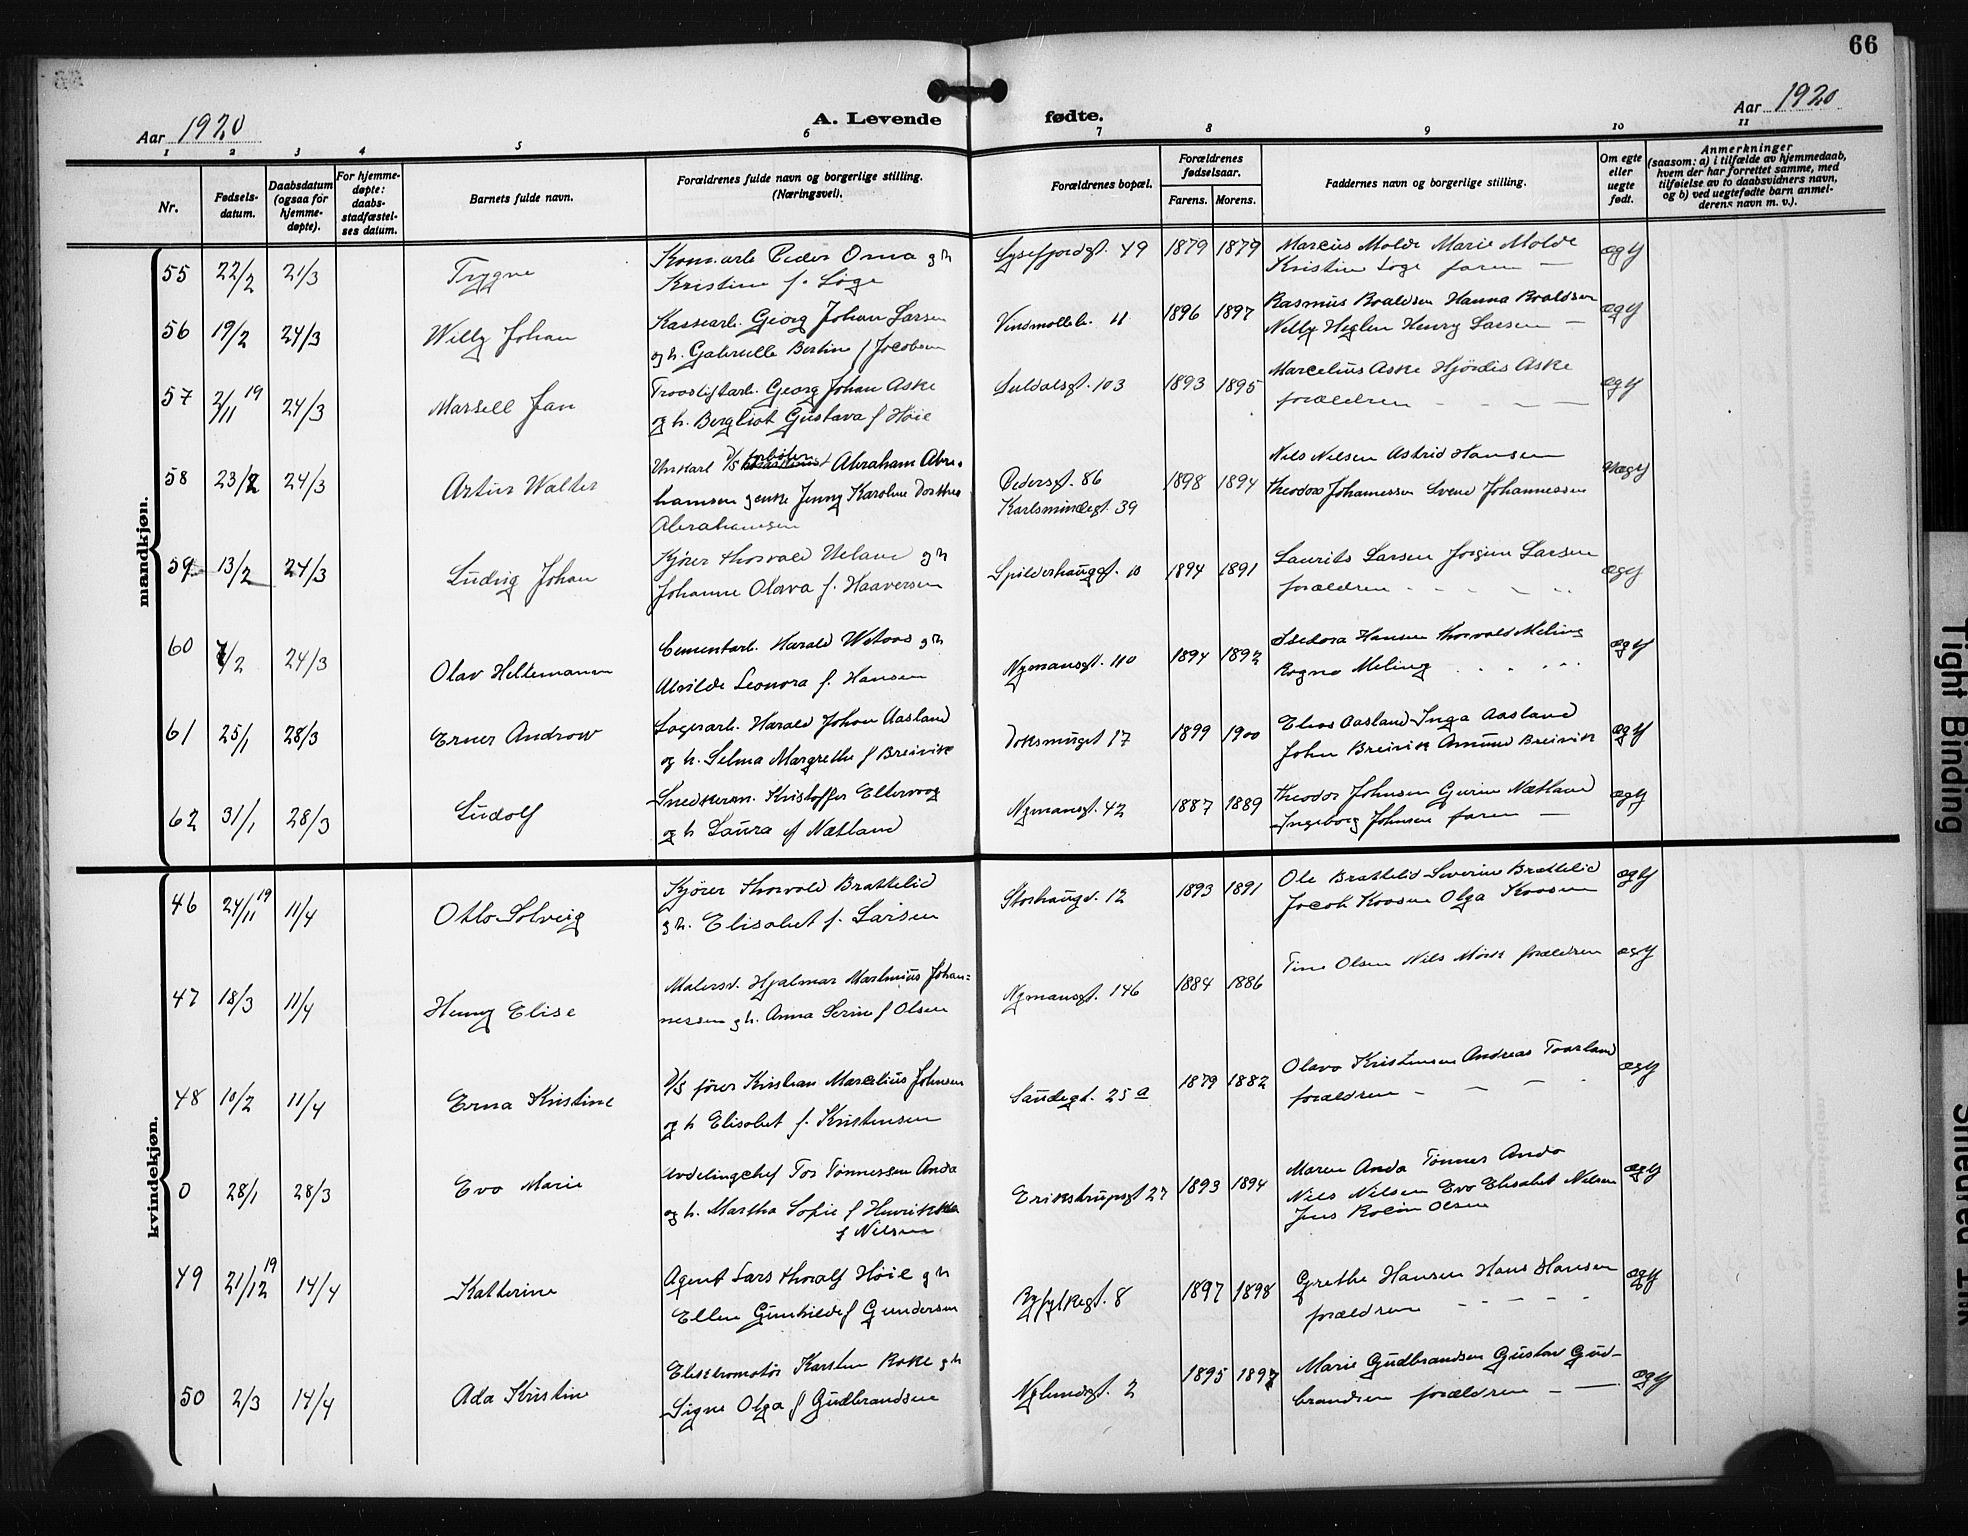 66
Aar 1920
A. Levende fødte.
Aar 1920
1 2 3 4 5 6 7 8 9 10 11
Nr.
Fødsels-
datum.
Daabsdatum
(ogsaa for
hjemme-
døpte).
For hjemme-
døpte:
daabs-
stadfæstel-
ses datum.
Barnets fulde navn.
Forældrenes fulde navn og borgerlige stilling.
(Næringsvei).
Forældrenes bopæl.
Forældrenes
fødselsaar.
Farens. Morens.
Faddernes navn og borgerlige stilling.
Om egte
eller
uegte
født.
Anmerkninger
(saasom: a) i tilfælde av hjemmedaab,
hvem der har forrettet samme, med
tilføielse av to daabsvidners navn,
og b) ved uegtefødte barn anmel-
derens navn m. v.).
mandkjøn.
55 22/2 21/3 Trygve
Peder Oma og h
Kristine f. Søge
Lysefjordgt. 49 1879 1879
Marcus Molde Marie Molde
Kristine Søge faren —
ægte
56 19/2 24/3 Willy Johan
Georg Johan Larsen
og h. Gabrielle Bertine f Jocobsen
Vindmølleb. 11 1896 1897
Rasmus Roaldsen Hanna Roaldsen
Nelly Heglen Henry Larsen —
ægte
57 2/11 19 24/3 Marsell Jan
Georg Johan Aske
og h. Bergliot Gustava f Høie
Suldalsgt. 103 1893 1895
Marcelius Aske Hjørdis Aske
forældren — — — —
ægte
58 23/2 24/3 Artur Walter
Ungkarl D/S Abraham Abra-
hamsen g enke Jenny Karoline
Abrahamsen
Pedersgt. 86
Karlsmindegt. 39
1898 1894
Nils Nilsen Astrid Hansen
Theodor Johannessen Svend Johannessen
uægte
59 13/2 24/3 Ludvig Johan
Kjører Thorvald Ueland og h
Johanne Olava f. Haaversen
Spilderhauggt. 10 1894 1891
Laurits Larsen Jørgine Larsen
forældren
ægte
60 7/2 24/3 Olav Heltemann
Cementarb. Harald og h
Alvilde Leonora f. Hansen
Nymansgt. 110 1894 1892
Isedora Hansen Thorvald Meling
Rogna Meling
ægte
61 25/1 28/3 Erner Androw
Lagerarb. Harald Johan Aasland
og h. Selma Margrethe f Breivik
Doksmugt 17 1899 1900
Elias Aasland Inga Aasland
John Breivik Amund Breivik
ægte
62 31/1 28/3 Ludolf
Snedkerm. Kristoffer Eltervog
og h Laura f Nætland
Nymansgt. 42 1887 1889
Theodor Johnsen Gurine Nætland
Ingeborg Johnsen faren —
ægte
kvindekjøn.
46 24/11 19 11/4 Otto Solveig
Kjører Thorvald Brattelid
g h. Elisabet f. Larsen
Storhaugv. 12 1893 1891
Ole Brattelid Severine Brattelid
Jacob Koosen Olga Koosen
ægte
47 18/3 11/4 Henny Elise
Malersv. Hjalmar Martinius Johan-
nessen g h. Anna Serine f Olsen
Nymansgt. 146 1884 1886
Tine Olsen Nils Mørk forældren
ægte
48 10/2 11/4 Erna Kristine
D/S fører Kristian Marcelius Johnsen
og h Elisabet f. Kristensen
Sandegt. 25 a 1879 1882
Olava Kristensen Andreas Toarland
forældren — — —
ægte
0 28/1 28/3 Eva Marie
Avdelingchef Tor Tønnessen Anda
og h. Martha Sofie f Henrikka
f Nilsen
Erikstrupsgt 27 1893 1894
Maren Anda Tønnes Anda
Nils Nilsen Eva Elisabet Nilsen
Jens Olsen
ægte
49 21/12 19 14/4 Katterine
Agent Lars Thoralf Høie g h
Ellen Gunhilde f Gundersen
Ryfylkegt. 8 1897 1898
Grethe Hansen Hans Hansen
forældren
ægte
50 2/3 14/4 Ada Kristine
Karsten Roke g h
Signe Olga f Gudbrandsen
Nylundsgt. 2 1895 1897
Marie Gudbrandsen Gustav Gud-
brandsen forældren — —
ægte
Tight Binding